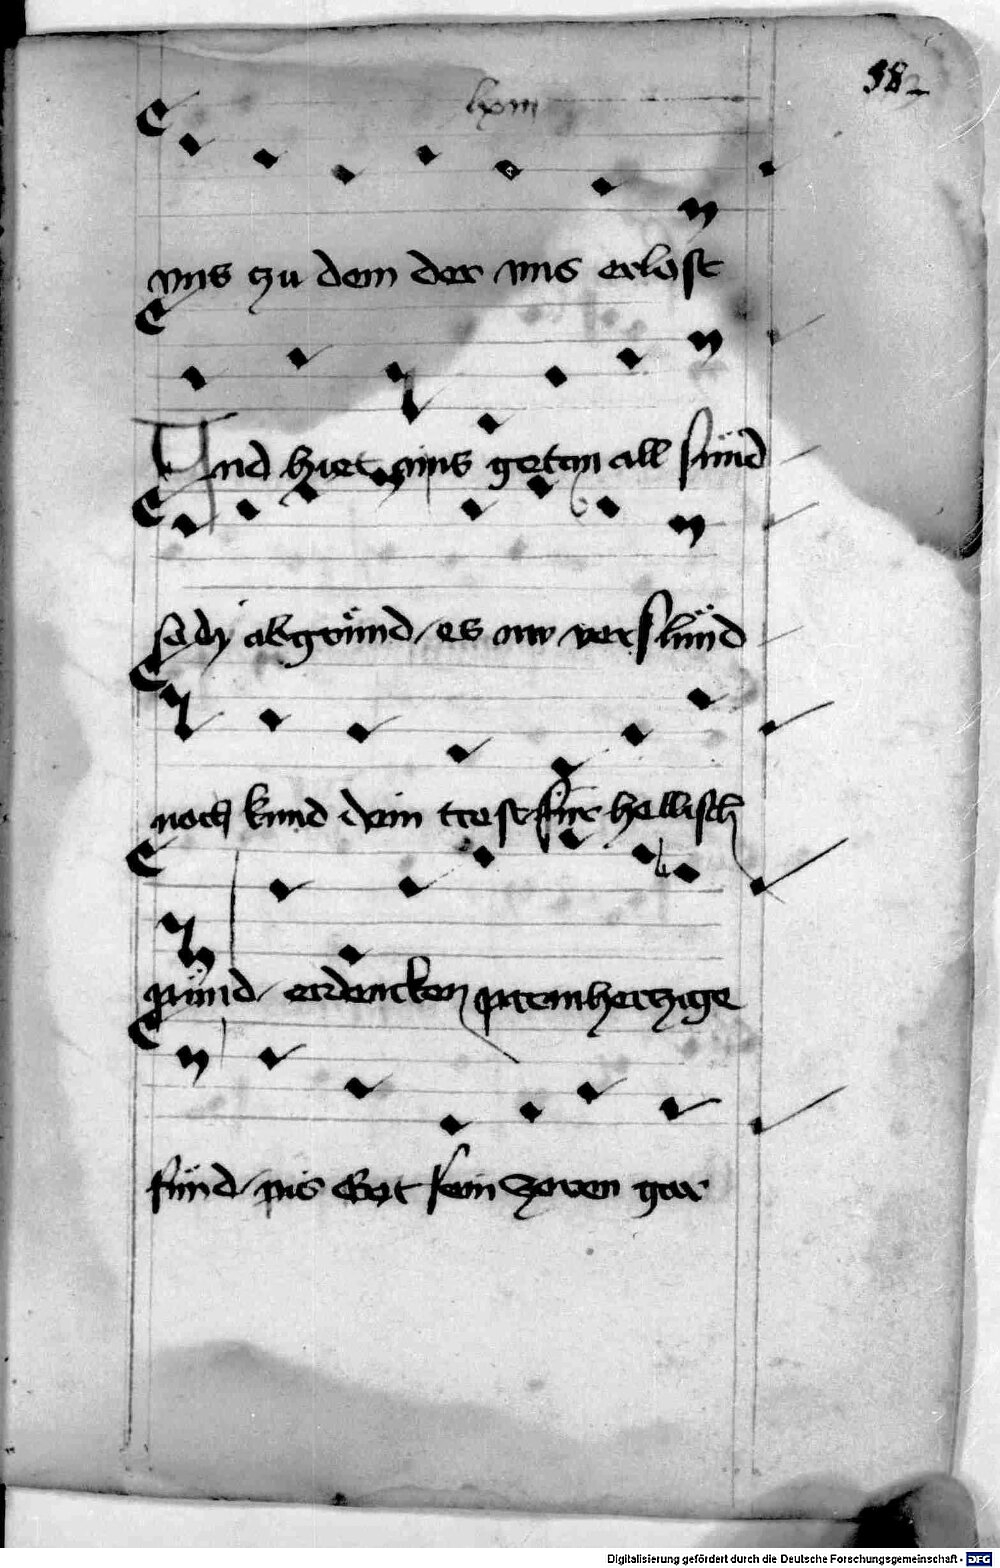 lxiii
582
vns zu dem der vns erlost
Vnd hiet ains getan all sünd
sech abgründ / es aw verslünd
noch kund dein trost für hellisch
pünd / erdencken parmhertzige
fünd / pis Got sein zoren gar
Digitalisierung gefördert durch die Deutsche Forschungsgemeinschaft - DFG